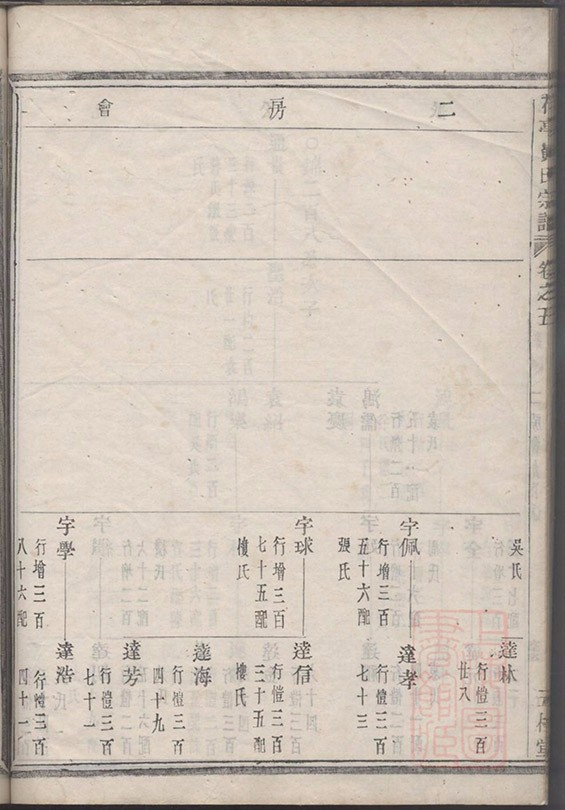 二房會
宗譜 卷之五
吳氏
達林
行愷三百
廿八
字佩
行增三百
五十六配
張氏
達孝
行愷三百
七十三
字球
行增三百
七十五配
樓氏
達信
行愷三百
三十五配
樓氏
達海
行愷三百
四十九
達芳
行愷三百
七十一
字學
行增三百
八十六配
達浩
行愷三百
四十一